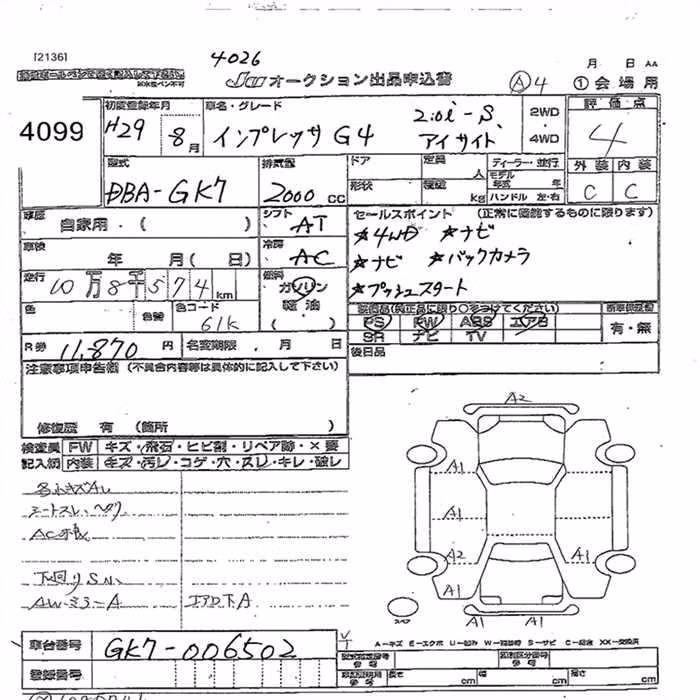 4026
[2136]
JU オークション出品申込書
月 日 AA
A 4
① 会場用
4099
初度登録年月
H29 8月
車名・グレード
インプレッサ G4
2.0i-S
アイサイト
2WD
4WD
評価点
4
型式
DBA-GK7
排気量
2000 cc
ドア
形状
定員 人
積載 kg
ディーラー・並行
モデル年式 年
ハンドル 左・右
外装 内装
C C
車歴
自家用・( )
シフト
AT
セールスポイント (正常に機能するものに限ります)
★4WD ★ナビ
★ナビ ★バックカメラ
★プッシュスタート
車検
年 月( 日)
冷房
AC
走行
10万8千574km
燃料
ガソリン
軽油
( )
色
色替
色コード
61K
装備品(純正品に限り○をつけてください)
PS PW ABS エアB
SR ナビ TV
新車保証書
有・無
R券 11,870 円
名変期限 . 月 日
後日品
注意事項申告欄 (不具合内容等は具体的に記入して下さい)
修復歴 有 (箇所 )
検査員記入欄
FW キズ・飛石・ヒビ割・リペア跡・×要
内装 キズ・汚レ・コゲ・穴・スレ・キレ・破レ
A2
A1
A1
A2 A1
A1 A1
A1 A1
スペア
各小キズAし
シートスレ、
下回りSN、
AWミラーA
エアロ下A
車台番号
GK7-006502
登録番号
A-キズ E-エクボ U-凹ミ W-補修跡 S-サビ C-腐蝕 XX-交換済
型式指定番号
類別区分番号
長さ cm
幅 cm
高さ cm